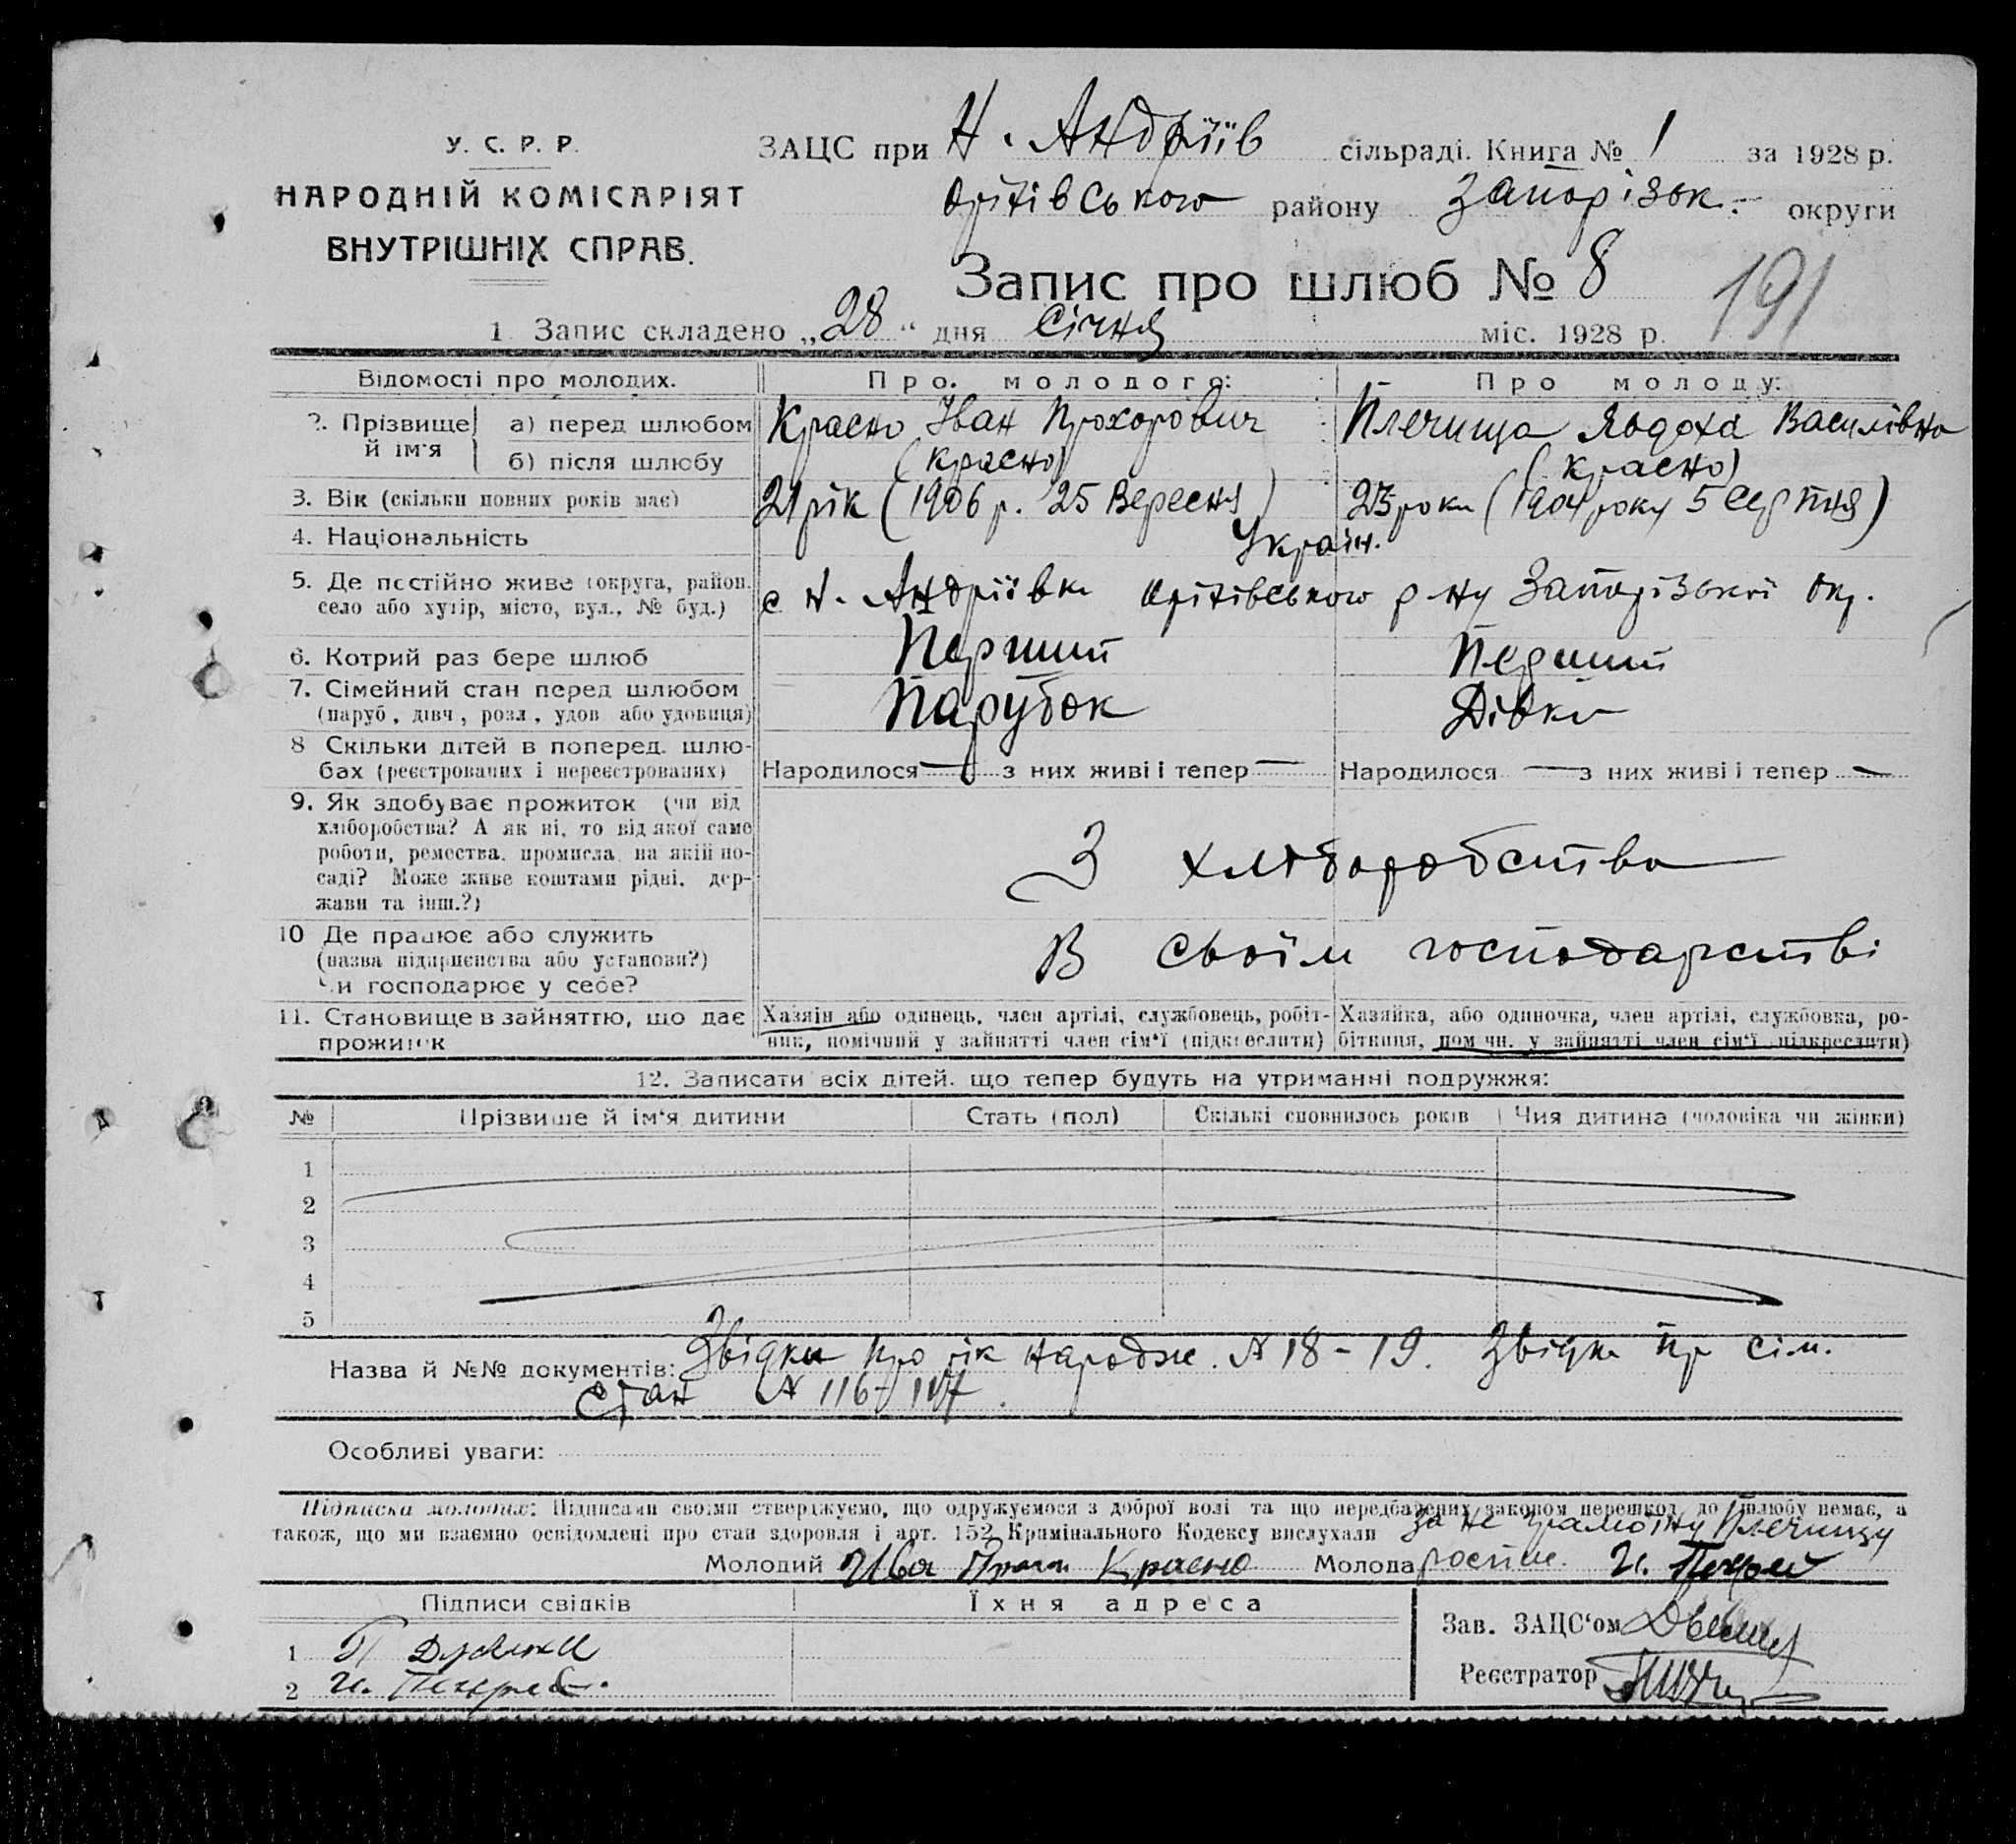 У. С. Р. Р.
НАРОДНІЙ КОМІСАРІЯТ
ВНУТРІШНІХ СПРАВ.
ЗАЦС при Н. Андріїв сільраді. Книга № 1 за 1928 р.
Оріхівського району Запорізьк. округи
Запис про шлюб № 8
191
1. Запис складено „28“ дня Січня міс. 1928 р.
Відомості про молодих. Про молодого: Про молоду:
2. Прізвище й ім'я а) перед шлюбом Красно Іван Прохорович Плечища Явдоха Василівна
б) після шлюбу (Красно) (Красно)
3. Вік (скільки повних років має) 21 рік (1906 р. 25 Вересня) 23 роки (1904 року 5 Серпня)
4. Національність Україн.
5. Де постійно живе (округа, район, село або хутір, місто, вул., № буд.) с Н. Андріївка Оріхівського р-ну Запорізької окр.
6. Котрий раз бере шлюб Перший Перший
7. Сімейний стан перед шлюбом (паруб., дівч., розл., удов. або удовиця) Парубок Дівка
8 Скільки дітей в поперед. шлюбах (реєстрованих і нереєстрованих) Народилося — з них живі і тепер — Народилося — з них живі і тепер —
9. Як здобуває прожиток (чи від хліборобства? А як ні, то від якої саме роботи, ремества, промисла, на якій посаді? Може живе коштами рідні, держави та інш.?) З хліборобства
10 Де працює або служить (назва підприємства або установи?) Чи господарює у себе? В своїм господарстві
11. Становище в зайняттю, що дає прожиток Хазяїн або одинець, член артілі, службовець, робітник, помічний у зайнятті член сім'ї (підкреслити) Хазяйка, або одиночка, член артілі, службовка, робітниця, помічн. у зайнятті член сім'ї (підкреслити)
12. Записати всіх дітей, що тепер будуть на утриманні подружжя:
№ Прізвище й ім'я дитини Стать (пол) Скількі сповнилось років Чия дитина (чоловіка чи жінки)
1
2
3
4
5
Назва й №№ документів: Звідки про рік народже. № 18-19. Звідки пр сім.
стан № 116-117.
Особливі уваги:
Підписка молодих: Підписами своїми стверджуємо, що одружуємося з доброї волі та що передбачених законом перешкод до шлюбу немає, а
також, що ми взаємно освідомлені про стан здоровля і арт. 152 Кримінального Кодексу вислухали За не грамотну Плечищу
Молодий Красно Молода роспис. И.
Підписи свідків Їхня адреса
Зав. ЗАЦС'ом
1 П
2 И.
Реєстратор